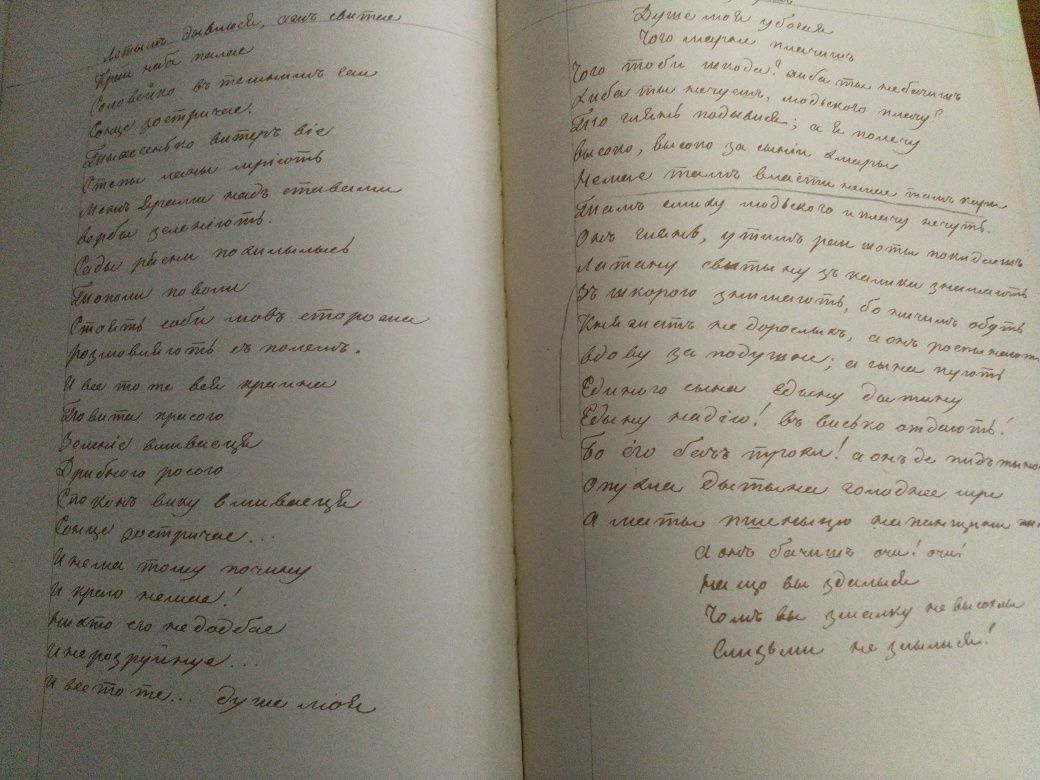 Летымъ дывлюся, ажъ свитае
Край неба палае
Соловейко въ темнимъ гаи
Сонце зостричае.
Тыхесенько витеръ віе
Степы ланы мріють
Межъ Ярами надъ ставами
вербы зеленіють.
Сады рясни похилылысь
Тополи поволи
Стоять соби мовъ сторожа
розмовляють съ полемъ.
И все то те вся краина
Повита красою
Зеленіе вмиваеця
Дрибною росою
Споконъ вику вмиваеця
Сонце зостричае...
И нема тому почину
И краю немае!
нихто его недодбае
И нерозруйнуе...
И все то те... душе моя
Душе моя убогая
Чого марно плачишъ
Чого тоби шкода? хиба ты небачишъ
Хиба ты нечуешъ, людьского плачу?
То глянь подывися; а я полечу
высоко, высоко за сыни хмары
Немае тамъ власти немае тамъ кары
Тамъ смиху людьского и плачу нечуть.
Онъ глянь, у тимъ раи шоты покидаешъ
Латану свытыну зъ калики знимають
Зъ шкорого знимають, бо ничимъ обуть
Княжатъ недорослыхъ, а онъ роспынають
вдову за подушне; а сына кують
Единого сына едыну дытыну
Едыну надію! въ висько отдають!
Бо его бачъ трохи! а онъ де пидъ тыномъ
Опухла дытына голоднее мре
А маты пшеныцю на панщыни
А онъ бачишъ очи! очи!
на що вы здалыся
Чомъ вы змалку не высохлы
Слизьми не злылыся!